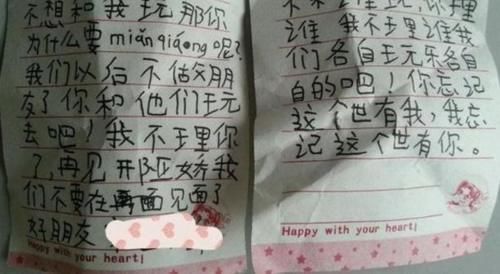 不想和我玩那你
为什么要miǎnqiǎng呢？
我们以后不做好朋
友了你和他们玩
去吧！我不理你
了，再见
我
们不要在再面见面了
好朋友
Happy with your heart!
谁玩，你理
谁我不理谁我
们各自玩乐各自
自的吧！你忘记
这个世有我，我忘
记这个世有你。
Happy with your heart!